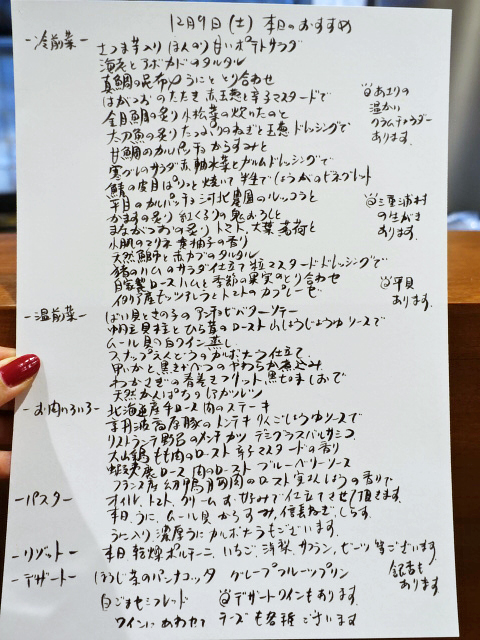 12月9日(土) 本日のおすすめ
-冷前菜-
さつま芋入り ほんのり甘いポテトサラダ
海老とアボカドのタルタル
真鯛の昆布〆 うにと とり合わせ
はがつおのたたき 赤玉葱と辛子マスタードで
金目鯛の炙り 小松菜の炊いたのと
太刀魚の炙り たっぷりのねぎと玉葱ドレッシングで
甘鯛のカルパッチョ からすみと
寒ブリのサラダ 赤軸水菜とガルムドレッシングで
鯖の皮目ぱりっと焼いて半生で しょうがのビネグレット
平目のカルパッチョ 河北農園のルッコラと
かますの炙り 紅くるりの鬼おろしと
まながつおの炙り トマト、大葉、茗荷と
小肌のマリネ 黄柚子の香り
天然鰤と赤カブのタルタル
猪のハムのサラダ仕立て 粒マスタードドレッシングで
自家製ロースハムと季節の果実のとり合わせ
イタリア産モッツァレラとトマトのカプレーゼ
あさりの
温かい
クラムチャウダー
あります。
三重浦村
の生がき
あります。
平貝
あります。
-温前菜-
ばい貝ときの子のアンチョビバターソテー
帆立貝柱とひら茸のロースト 山しょうじょうゆソースで
ムール貝の白ワイン蒸し
スナップえんどうのカルボナーラ仕立て
甲いかと黒キャベツのやわらか煮込み
わかさぎの青春きフリット 黒七味しおで
天然かんぱちのレアカツレツ
-お肉いろいろ-
北海道産牛ロース肉のステーキ
京丹波高原豚のトンテキ りんごしょうゆソースで
リストランテ野呂のメンチカツ デミグラスバルサミコ
大山鶏もも肉のロースト 辛子マスタードの香り
蝦夷鹿ロース肉のロースト ブルーベリーソース
フランス産 幼鴨胸肉のロースト 実さんしょうの香りで
-パスタ-
オイル、トマト、クリーム お好みで仕立てさせて頂きます。
本日、うに、ムール貝、からすみ、信長ねぎ、しらす、
うに入り濃厚うにカルボナーラもございます。
-リゾット-
本日 乾燥ポルチーニ、いちご、洋梨、サフラン、ビーツ 等ございます
-デザート-
ほうじ茶のパンナコッタ グレープフルーツプリン
白ごまセミフレード
デザートワインもあります。
ワインにあわせて チーズも各種ございます